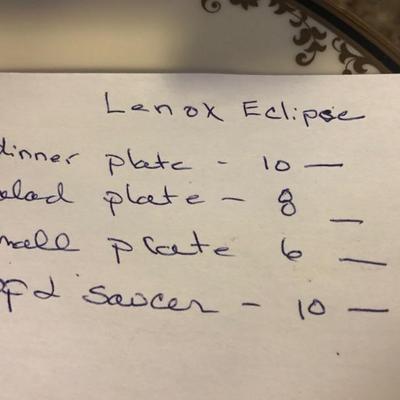 Lenox Eclipse
dinner plate - 10 —
alad plate - 8 _
mall plate 6 —
saucer - 10 —